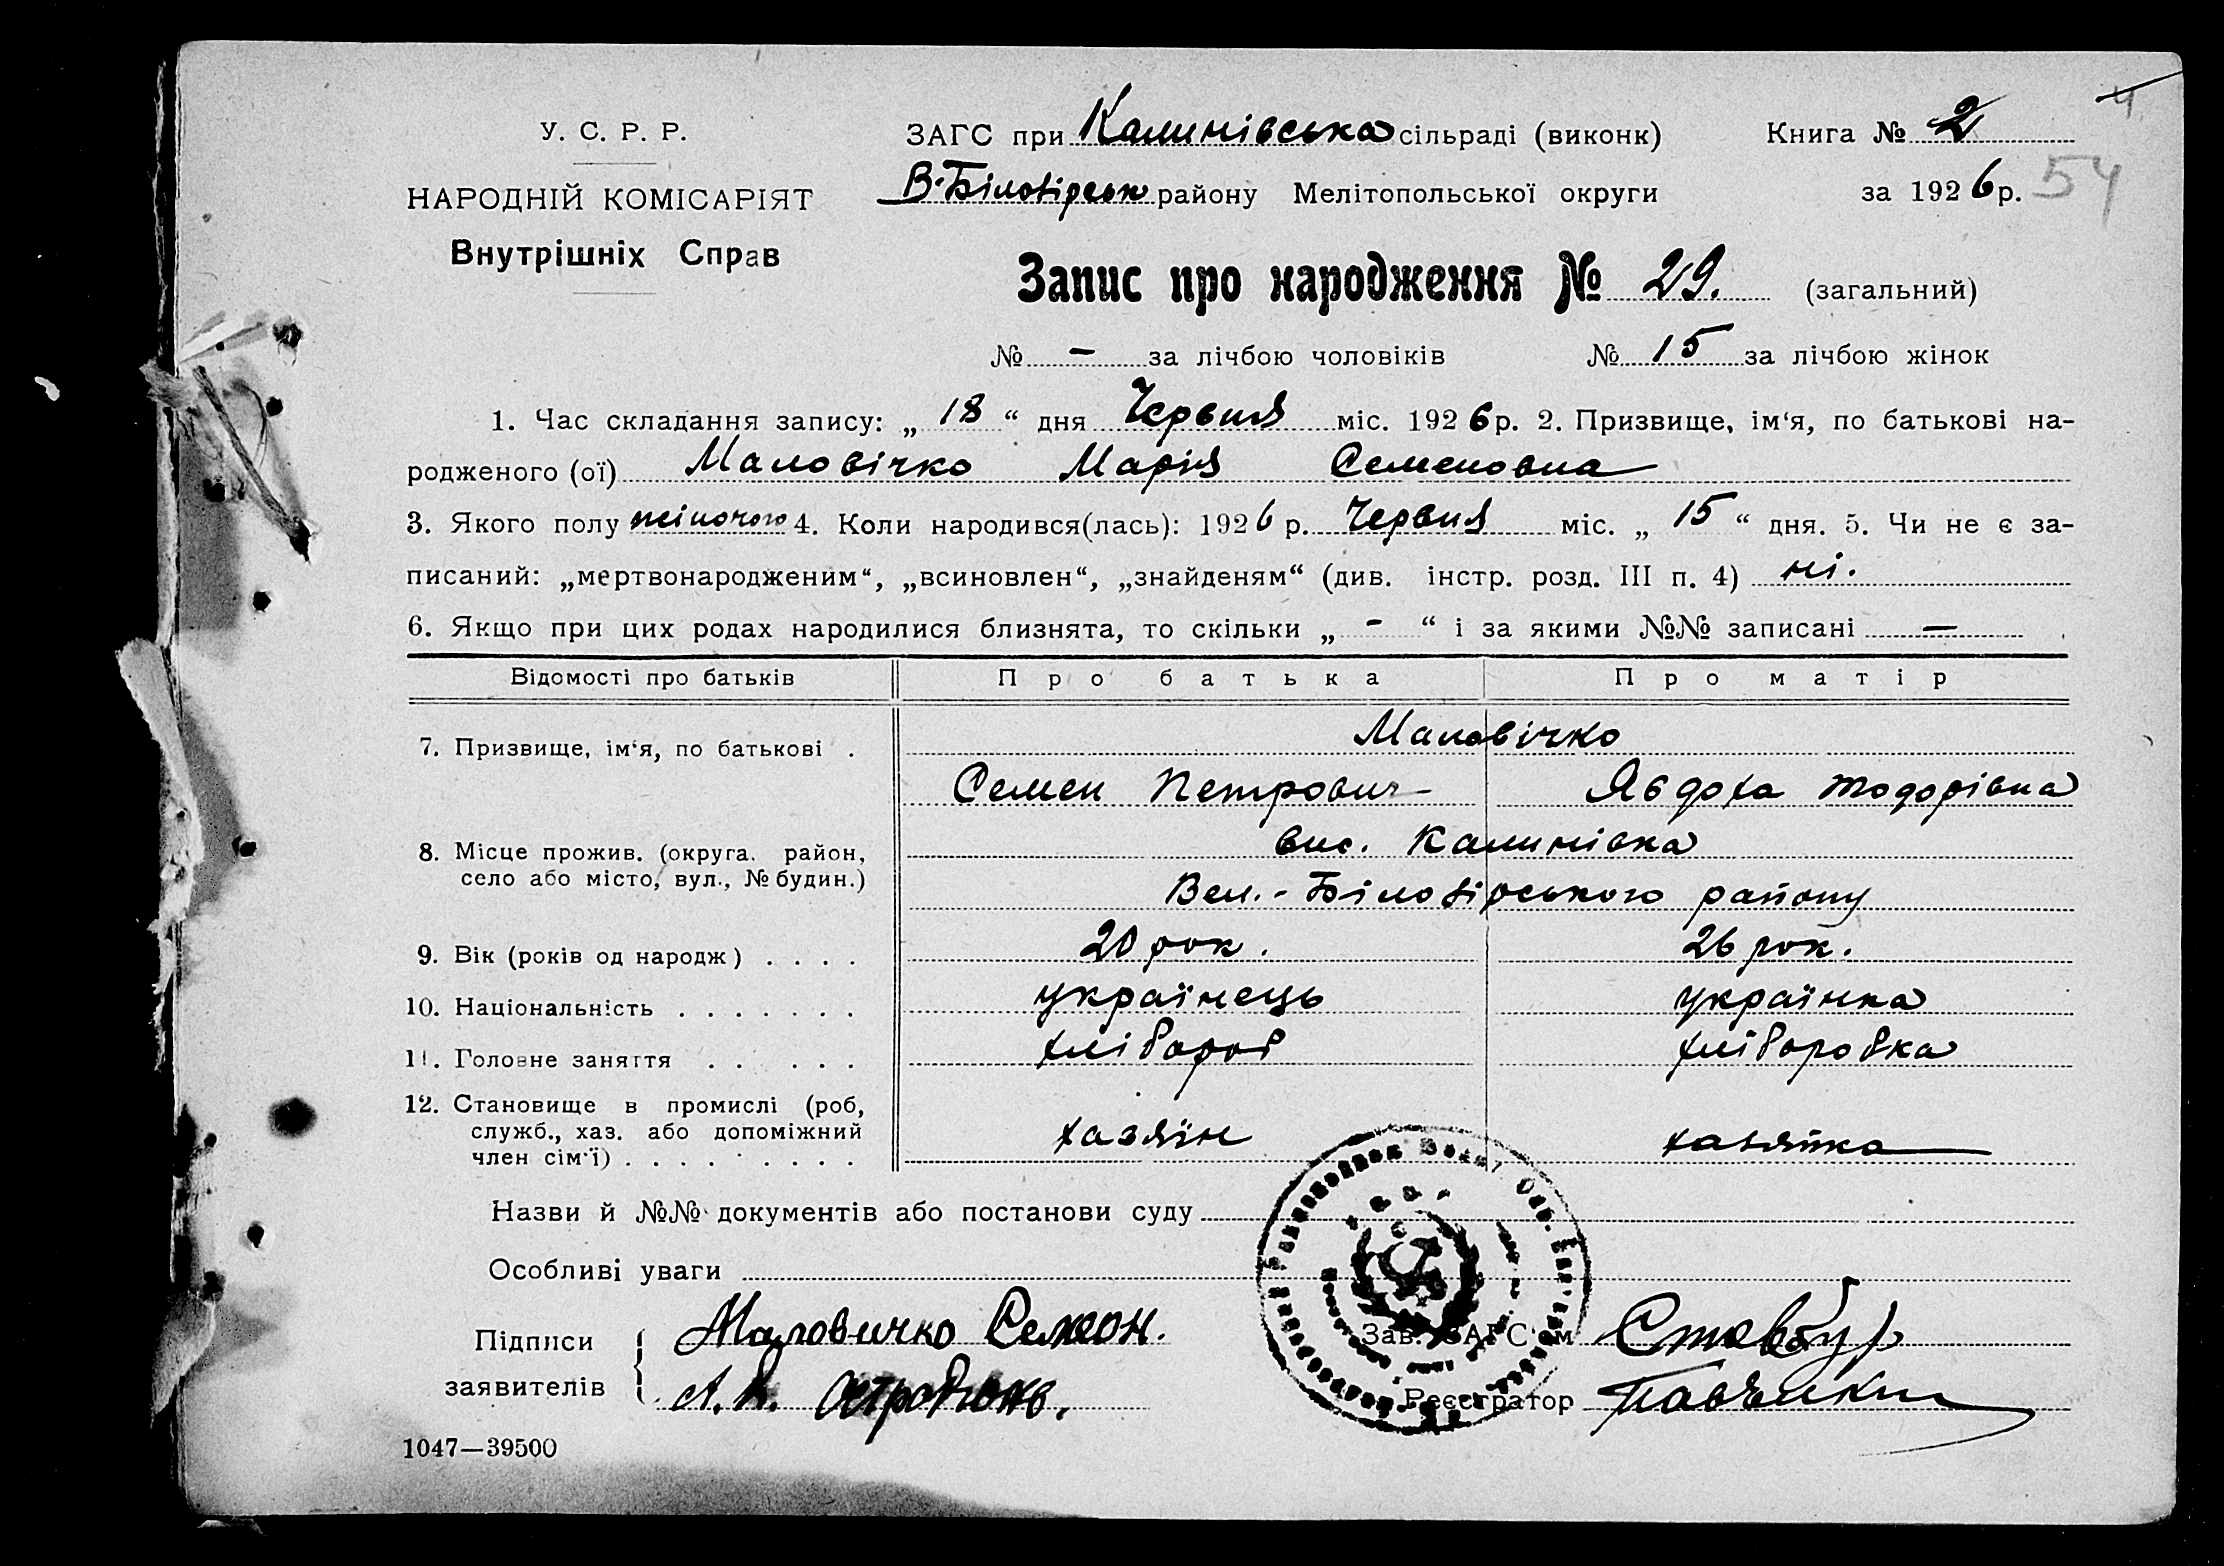 4
У. С. Р. Р.
ЗАГС при Калинівська сільраді (виконк)
Книга № 2
НАРОДНІЙ КОМІСАРІЯТ
В.-Білозірськ району Мелітопольської округи
за 1926 р.
54
Внутрішніх Справ
Запис про народження № 29. (загальний)
№ - за лічбою чоловіків № 15 за лічбою жінок
1. Час складання запису: „ 18 “ дня Червня міс. 1926 р. 2. Призвище, ім‘я, по батькові на-
родженого (ої) Маловічко Марія Семеновна
3. Якого полу жіночого 4. Коли народився(лась): 1926 р. Червня міс. „ 15 “ дня. 5. Чи не є за-
писаний: „мертвонародженим“, „всиновлен“, „знайденям“ (див. інстр. розд. III п. 4) ні.
6. Якщо при цих родах народилися близнята, то скільки „ - “ і за якими №№ записані —
Відомості про батьків Про батька Про матір
7. Призвище, ім‘я, по батькові . Маловічко
Семен Петрович Явдоха Тодорівна
8. Місце прожив. (округа. район, вис. Калинівка
село або місто, вул., № будин.) Вел.-Білозірського району
9. Вік (років од народж) . . . . 20 рок. 26 рок.
10. Національність . . . . . . . українець українка
11. Головне заняття . . . . . . хлібороб хліборобка
12. Становище в промислі (роб,
служб., хаз. або допоміжний хазяїн хазяйка
член сім‘ї) . . . . . . . . .
Назви й №№ документів або постанови суду
Особливі уваги
Підписи
заявителів
Маловичко Семеон.
Зав. ЗАГС‘ом
Реєстратор
1047—39500